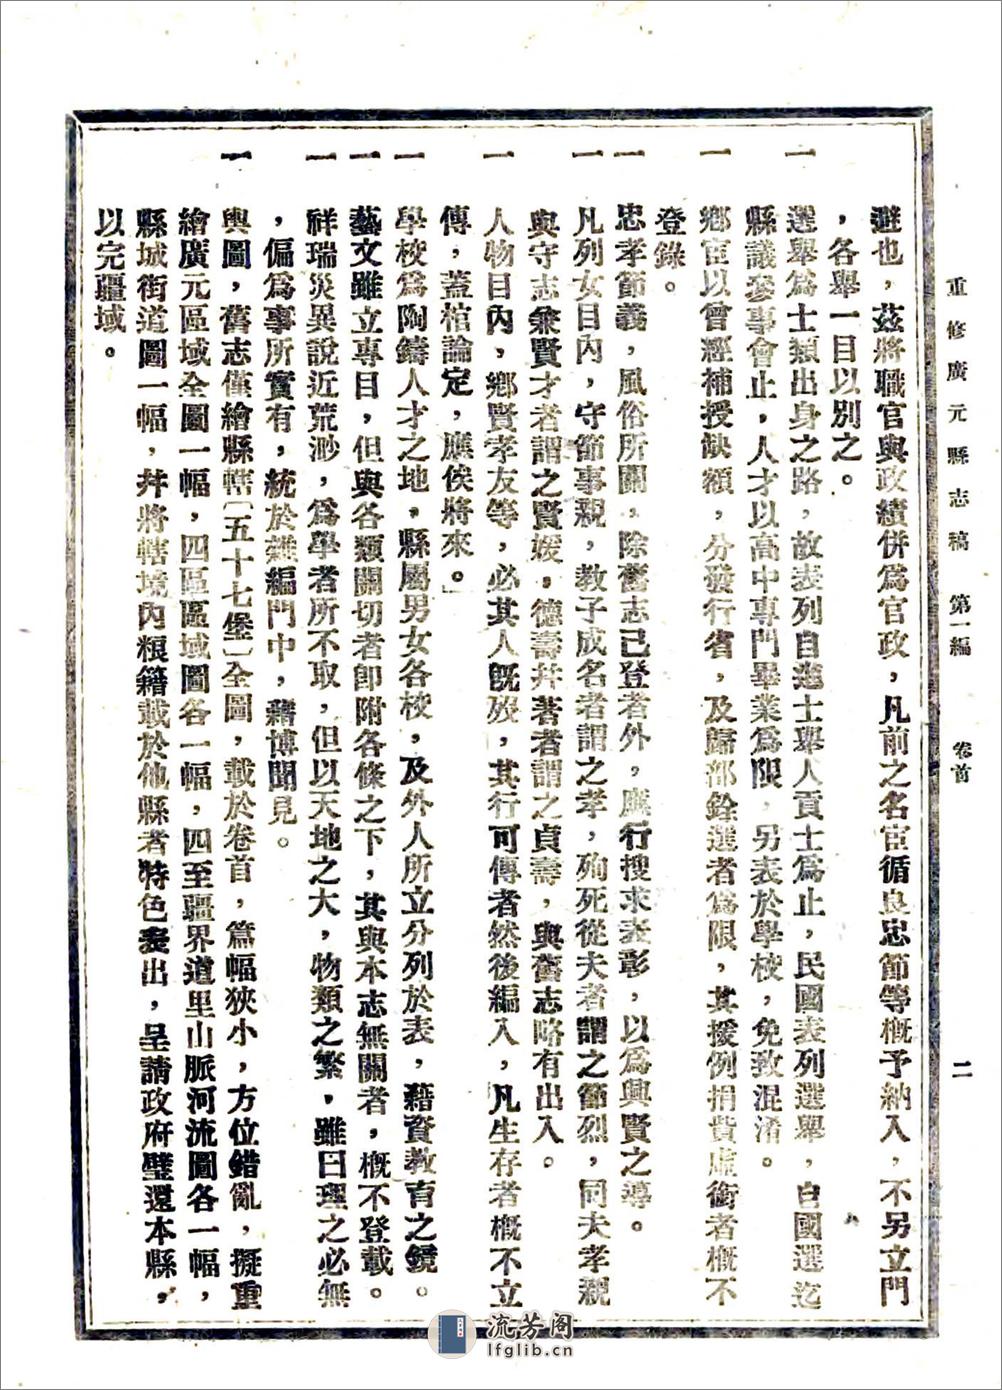 重修廣元縣志稿　第一編　卷首　二
避也，茲將職官與政績併爲官政，凡前之名宦循良忠節等槪予納入，不另立門
，各舉一目以別之。
一　選舉爲士類出身之路，故表列自進士舉人貢士爲止，民國表列選舉，自國選迄
縣議參事會止，人才以高中專門畢業爲限，另表於學校，免致混淆。
一　鄉宦以曾經補授缺額，分發行省，及歸部銓選者爲限，其援例捐貲虛銜者槪不
登錄。
一　忠孝節義，風俗所關，除舊志已登者外，應行搜求表彰，以爲興賢之導。
一　凡列女目內，守節事親，教子成名者謂之孝，殉死從夫者謂之節烈，同夫孝親
與守志兼賢才者謂之賢媛，德壽幷著者謂之貞壽，與舊志略有出入。
一　人物目內，鄉賢孝友等，必其人旣歿，其行可傳者然後編入，凡生存者槪不立
傳，蓋棺論定，應俟將來。」
一　學校爲陶鑄人才之地，縣屬男女各校，及外人所立分列於表，藉資教育之鏡。
一　藝文雖立專目，但與各類關切者卽附各條之下，其與本志無關者，槪不登載。
一　祥瑞災異說近荒渺，爲學者所不取，但以天地之大，物類之繁，雖曰理之必無
，偏爲事所實有，統於雜編門中，藉博聞見。
一　輿圖，舊志僅繪縣轄〔五十七堡〕全圖，載於卷首，篇幅狹小，方位錯亂，擬重
繪廣元區域全圖一幅，四區區域圖各一幅，四至疆界道里山脈河流圖各一幅，
縣城街道圖一幅，幷將轄境內粮籍載於他縣者特色表出，呈請政府璧還本縣，
以完疆域。
流芳阁
lfglib.cn